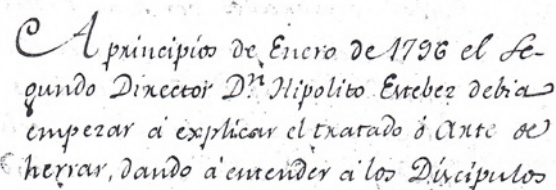 A principios de Enero de 1796 el Se-
gundo Director Dn Hipolito Estebez debia
empezar á explicar el tratado ó Arte de
herrar, dando á entender á los Discipulos